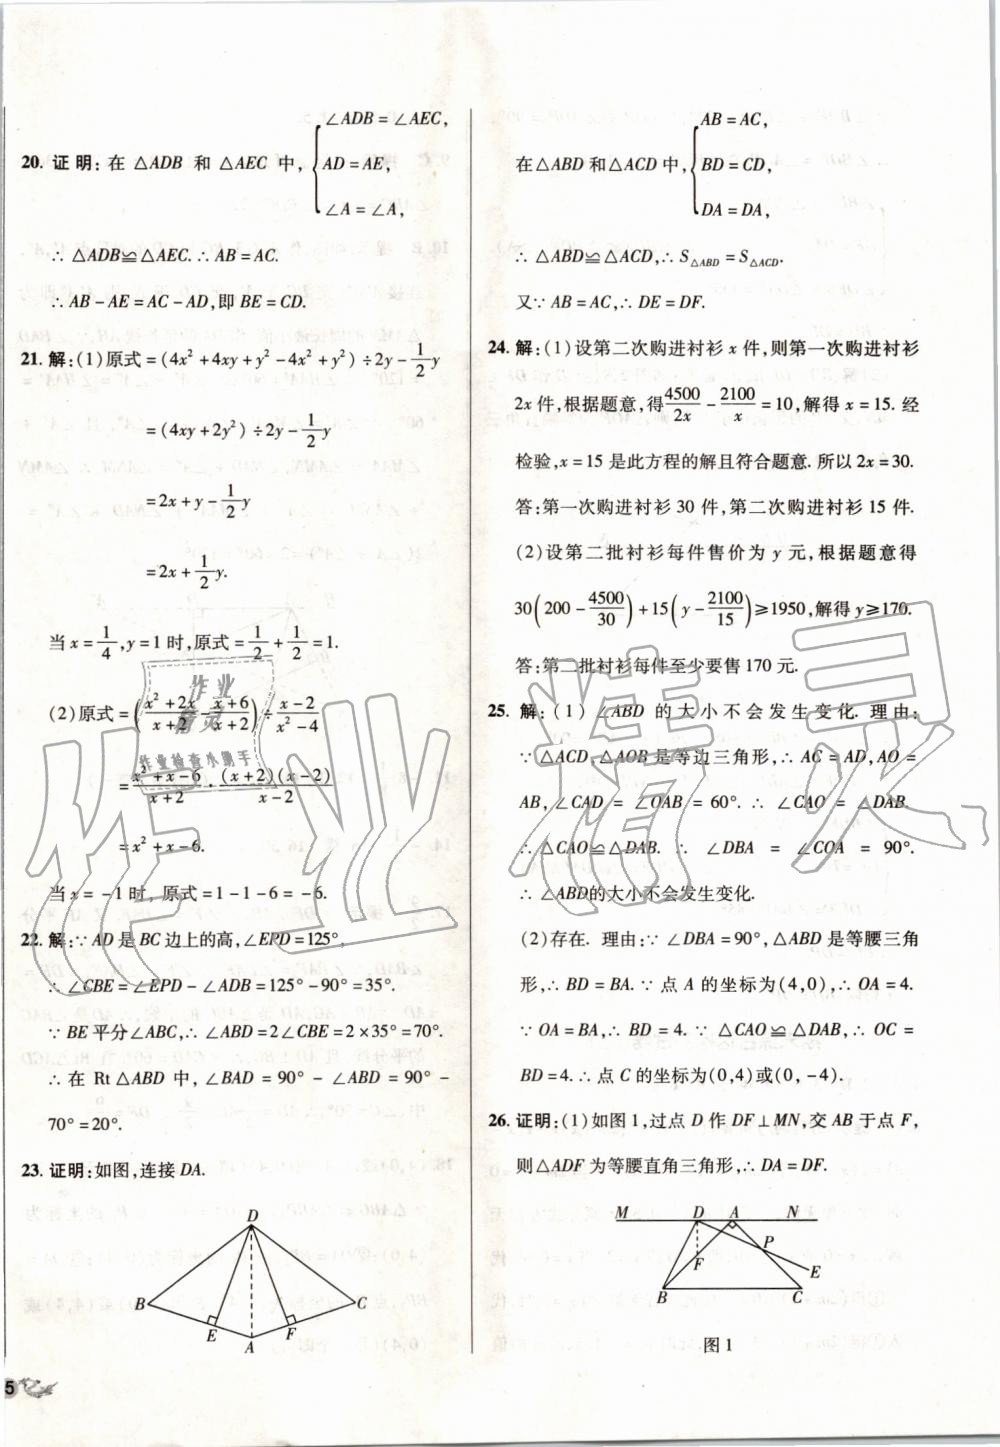 20. 证明:在△ADB 和△AEC 中, { ∠ADB=∠AEC,
AD=AE,
∠A=∠A,
∴△ADB≌△AEC.∴AB=AC.
∴AB-AE=AC-AD,即 BE=CD.
21. 解:(1)原式=(4x²+4xy+y²-4x²+y²)÷2y-1/2 y
=(4xy+2y²)÷2y-1/2 y
=2x+y-1/2 y
=2x+1/2 y.
当 x=1/4,y=1 时,原式=1/2+1/2=1.
(2)原式=(x²+2x/x+2 - x+6/x+2)÷x-2/x²-4
=x²+x-6/x+2·(x+2)(x-2)/x-2
=x²+x-6.
当 x=-1 时,原式=1-1-6=-6.
22. 解:∵AD 是 BC 边上的高,∠EPD=125°,
∴∠CBE=∠EPD-∠ADB=125°-90°=35°.
∵BE 平分∠ABC,∴∠ABD=2∠CBE=2×35°=70°.
∴在 Rt△ABD 中,∠BAD=90°-∠ABD=90°-
70°=20°.
23. 证明:如图,连接 DA.
D
B
C
E
F
A
5
在△ABD 和△ACD 中, { AB=AC,
BD=CD,
DA=DA,
∴△ABD≌△ACD,∴S△ABD=S△ACD.
又∵AB=AC,∴DE=DF.
24. 解:(1)设第二次购进衬衫 x 件,则第一次购进衬衫
2x 件,根据题意,得4500/2x-2100/x=10,解得 x=15. 经
检验,x=15 是此方程的解且符合题意. 所以 2x=30.
答:第一次购进衬衫 30 件,第二次购进衬衫 15 件.
(2)设第二批衬衫每件售价为 y 元,根据题意得
30(200-4500/30)+15(y-2100/15)≥1950,解得 y≥170.
答:第二批衬衫每件至少要售 170 元.
25. 解:(1)∠ABD 的大小不会发生变化. 理由:
∵△ACD,△AOB 是等边三角形,∴AC=AD,AO=
AB,∠CAD=∠OAB=60°.∴∠CAO=∠DAB.
∴△CAO≌△DAB.∴∠DBA=∠COA=90°.
∴∠ABD的大小不会发生变化.
(2)存在. 理由:∵∠DBA=90°,△ABD 是等腰三角
形,∴BD=BA.∵点 A 的坐标为(4,0),∴OA=4.
∵OA=BA,∴BD=4.∵△CAO≌△DAB,∴OC=
BD=4.∴点 C 的坐标为(0,4)或(0,-4).
26. 证明:(1)如图 1,过点 D 作 DF⊥MN,交 AB 于点 F,
则△ADF 为等腰直角三角形,∴DA=DF.
M D A N
P
F
E
B C
图 1
作业
精灵
作业检查小助手
作业精灵